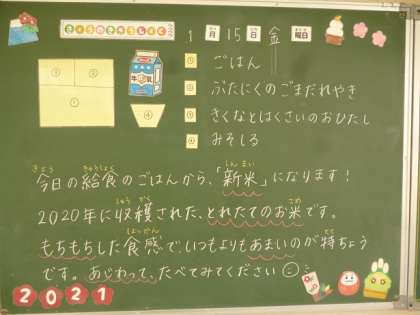 きょうのきゅうしょく
1月15日金曜日
① ② ③ ④
牛乳
① ごはん
② ぶたにくのごまだれやき
③ さくなとはくさいのおひたし
④ みそしる
今日の給食のごはんから、「新米」になります！
2020年に収穫された、とれたてのお米です。
もちもちした食感で、いつもよりもあまいのが特ちょう
です。あじわって、たべてみてください
2021